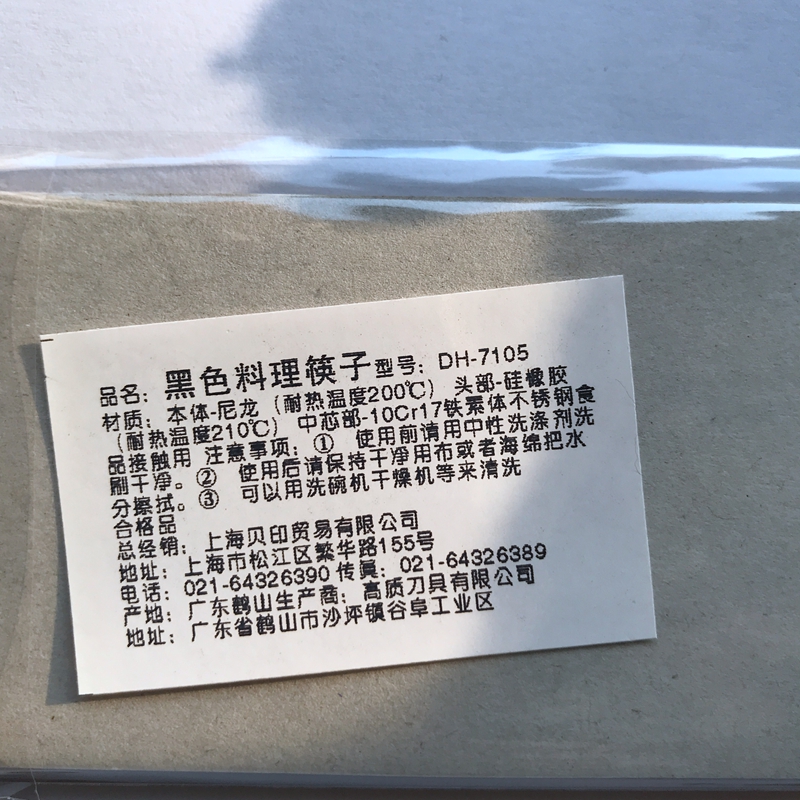 品名：黑色料理筷子型号：DH-7105
材质：本体-尼龙（耐热温度200℃） 头部-硅橡胶
（耐热温度210℃） 中芯部-10Cr17铁素体不锈钢食
品接触用 注意事项：① 使用前请用中性洗涤剂洗
刷干净。② 使用后请保持干净用布或者海绵把水
分擦拭。③ 可以用洗碗机干燥机等来清洗
合格品
总经销：上海贝印贸易有限公司
地址：上海市松江区繁华路155号
电话：021-64326390 传真：021-64326389
产地：广东鹤山生产商：高质刀具有限公司
地址：广东省鹤山市沙坪镇谷阜工业区